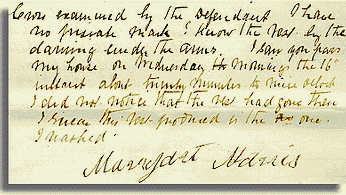 Cross examined by the Defendant I have
no private mark I know the Vest by the
darning under the arms. I saw you pass
my house on Wednesday Mornings the 16th
instant about twenty minutes to nine oclock
I did not notice that the Vest had gone then
I swear this Vest produced is the one.
I washed.
Margaret Harris